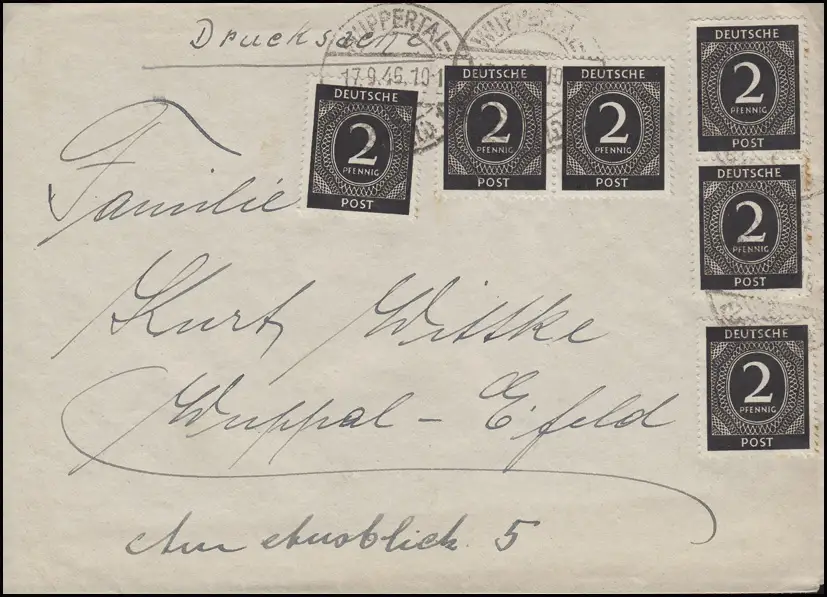 Drucksache
WUPPERTAL-
17.9.46.19-
WUPPERTAL-
DEUTSCHE
2
PFENNIG
POST
DEUTSCHE
2
PFENNIG
POST
DEUTSCHE
2
PFENNIG
POST
DEUTSCHE
2
PFENNIG
POST
DEUTSCHE
2
PFENNIG
POST
DEUTSCHE
2
PFENNIG
POST
Familie
Kurt Wittke
Wuppal - E'feld
Am Ausblick 5